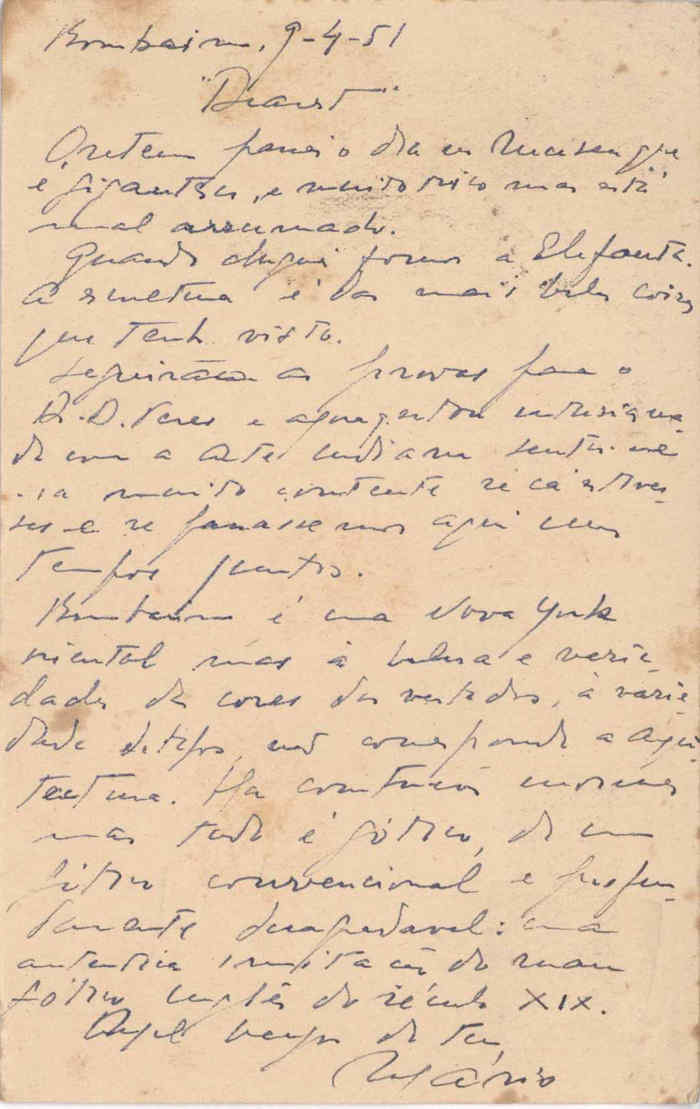 Bombaim, 9-4-51
"Ducrest"
Ontem passei o dia no Museu que
é gigantesco, é muito rico mas está
mal arrumado.
Quando cheguei fomos a Elefanta.
A escultura é das mais belas coisas
que tenho visto.
Seguirão as provas para o
e
com a arte indiana sentir-me
-ia muito contente se cá estives-
ses e se passassemos aqui uns
tempos juntos.
Bombaim é uma Nova York
oriental mas à beleza e varie-
dades de cores dos vestidos, à varie-
dade de tipos, não corresponde a arqui-
tectura. Há construções enormes
mas tudo é gótico, de um
gótico convencional e profun-
damente desagradavel: uma
autentica imitação do mau
gótico inglês do século XIX.
do teu
Mário